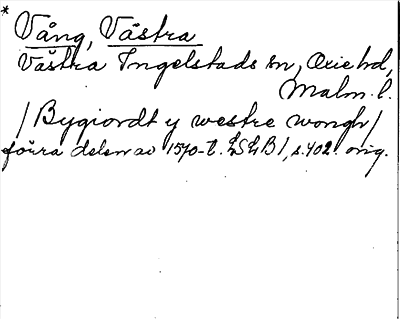 * Vång, Västra
Västra Ingelstads sn, Oxie hd,
Malm. l.
/ Bygiordt y westre wongh /
förra delen av 1570-t. LSLB 1, s. 402. orig.